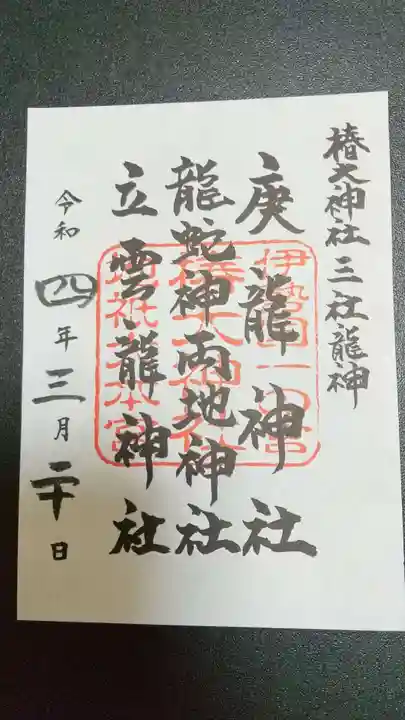 椿大神社 三社龍神
庚龍神社
龍蛇神両地神社
立雲龍神社
伊勢国一の宮
椿大神社
地祇大本宮
令和四年三月二十日